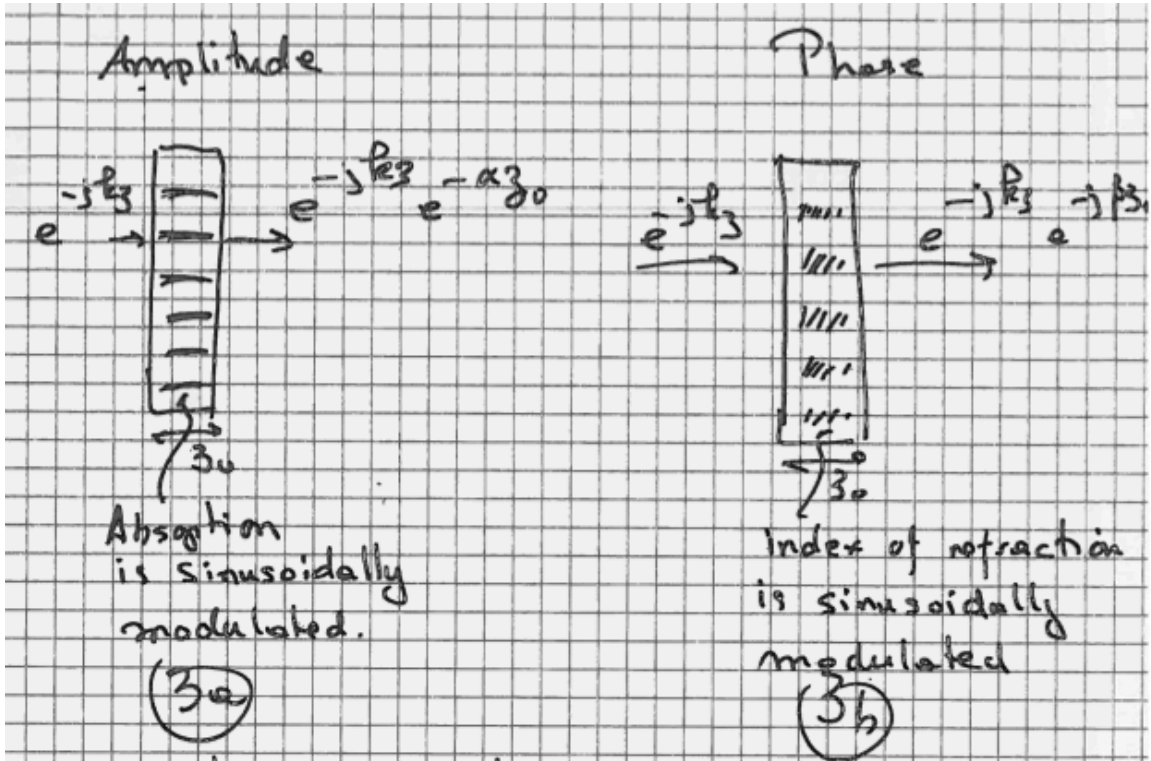 Amplitude
e^{-jkz} → e^{-jkz} e^{-αz_0}
z_0
Absoption
is sinusoidally
modulated.
3a
Phase
e^{-jkz} e^{-jkz} e^{-jβz_0}
z_0
index of refraction
is sinusoidally
modulated
3b